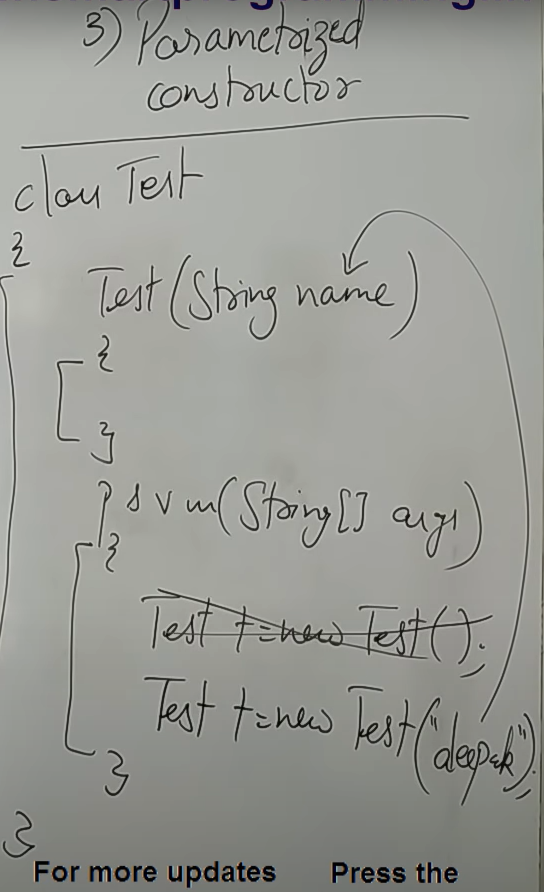 3) Parametrized
constructor
class Test
{
Test (String name)
{
}
p s v m (String[] args)
{
Test t = new Test();
Test t = new Test("deepak");
}
}
For more updates Press the